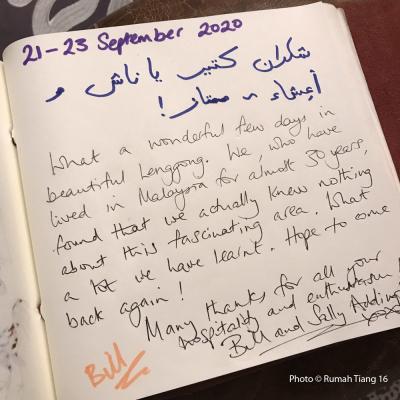 21-23 September 2020
شكران كتير يا ناش و
What a wonderful few days in
beautiful Lenggong. We, who have
lived in Malaysia for almost 30 years,
found that we actually knew nothing
about this fascinating area. What
a lot we have learnt. Hope to come
back again!
Many thanks for all your
hospitality and enthusiasm
Bill and Sally Adding
Bill
Photo © Rumah Tiang 16